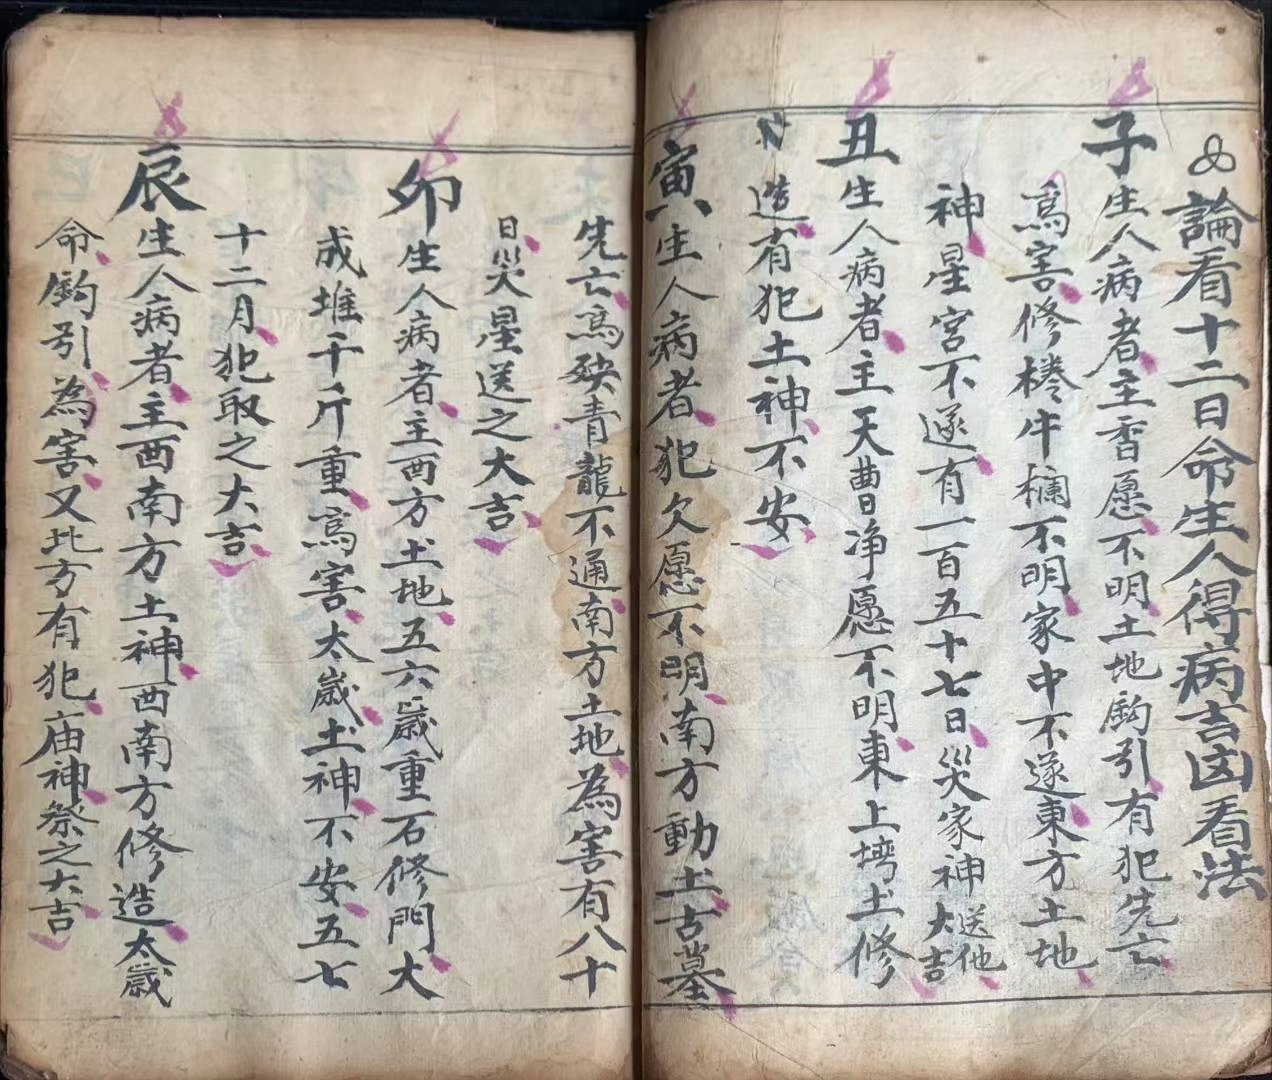 論看十二日命生人得病吉凶看法
子生人病者主香愿不明土地鈎引有犯先亡
爲害修棬牛欄不明家中不遂東方土地
神星宮不遂有一百五十七日災家神送他大吉
丑生人病者主天曹净愿不明東上塆土修
造有犯土神不安
寅生人病者犯欠愿不明南方動土古墓
先亡爲殃青龍不通南方土地為害有八十
日災星送之大吉
卯生人病者主西方土地五六歲重石修門大
成堆千斤重爲害太歲土神不安五七
十二月犯取之大吉
辰生人病者主西南方土神西南方修造太歲
命鈎引為害又北方有犯庙神祭之大吉